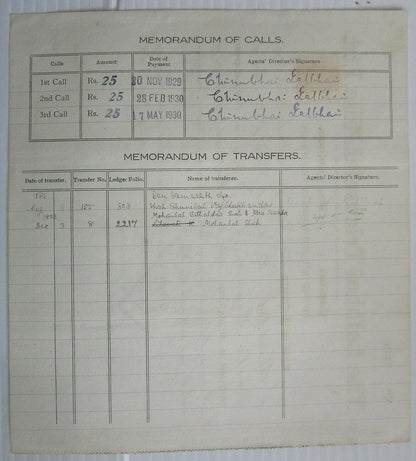 MEMORANDUM OF CALLS.
Calls Amount Date of Payment Agents' Director's Signature
1st Call Rs. 25 20 NOV 1929 Chinubhai Lalbhai
2nd Call Rs. 25 28 FEB 1930 Chinubhai Lalbhai
3rd Call Rs. 25 17 MAY 1930 Chinubhai Lalbhai
MEMORANDUM OF TRANSFERS.
Date of transfer. Transfer No. Ledger Folio. Name of transferee. Agents' Director's Signature.
Shah Chunilal
Mohanlal Vithaldas Shah & Mrs
Dec 3 8 2217 Mohanlal Shah